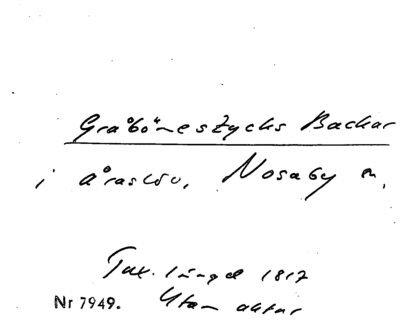 Gråbönestycks Backar
i åraslöv, Nosaby sn,
Tax. längd 1817
Nr 7949. Utan aktnr